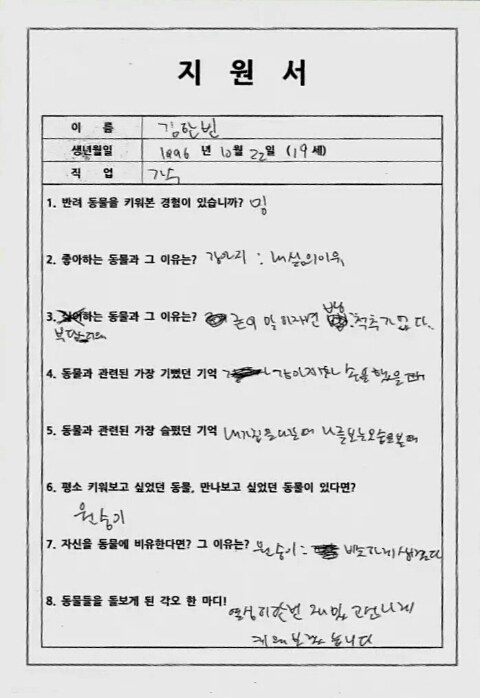 지 원 서
이 름 김한빈
생년월일 1996 년 10월 22일 (19세)
직 업 가수
1. 반려 동물을 키워본 경험이 있습니까?
2. 좋아하는 동물과 그 이유는? 강아지 : 내 삶의 이유
3. 싫어하는 동물과 그 이유는? 척추가 없다.
4. 동물과 관련된 가장 기뻤던 기억 강아지 손을 했을 때
5. 동물과 관련된 가장 슬펐던 기억 내가 집을 나갈 때 나를 보는 모습을 볼 때
6. 평소 키워보고 싶었던 동물, 만나보고 싶었던 동물이 있다면?
원숭이
7. 자신을 동물에 비유한다면? 그 이유는? 원숭이 : 비슷하게 생겼다
8. 동물들을 돌보게 된 각오 한 마디! 열심히 한번 재밌고